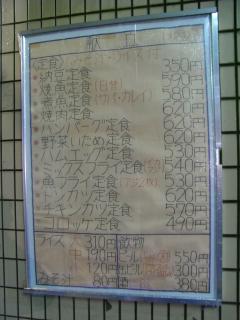 献立
(定食)
納豆定食 350円
焼魚定食(自サ) 590円
煮魚定食(サバ・カレイ) 580円
焼肉定食 620円
ハンバーグ定食 620円
野菜いため定食 620円
ハムエッグ定食 530円
ミックスフライ定食 540円
魚フライ定食 530円
トンカツ定食 620円
チキンカツ定食 570円
コロッケ定食 490円
ライス 大 310円 飲物
中 190円 ビール 大 550円
小 120円 ビール 300円
みそ汁 80円 酒 380円